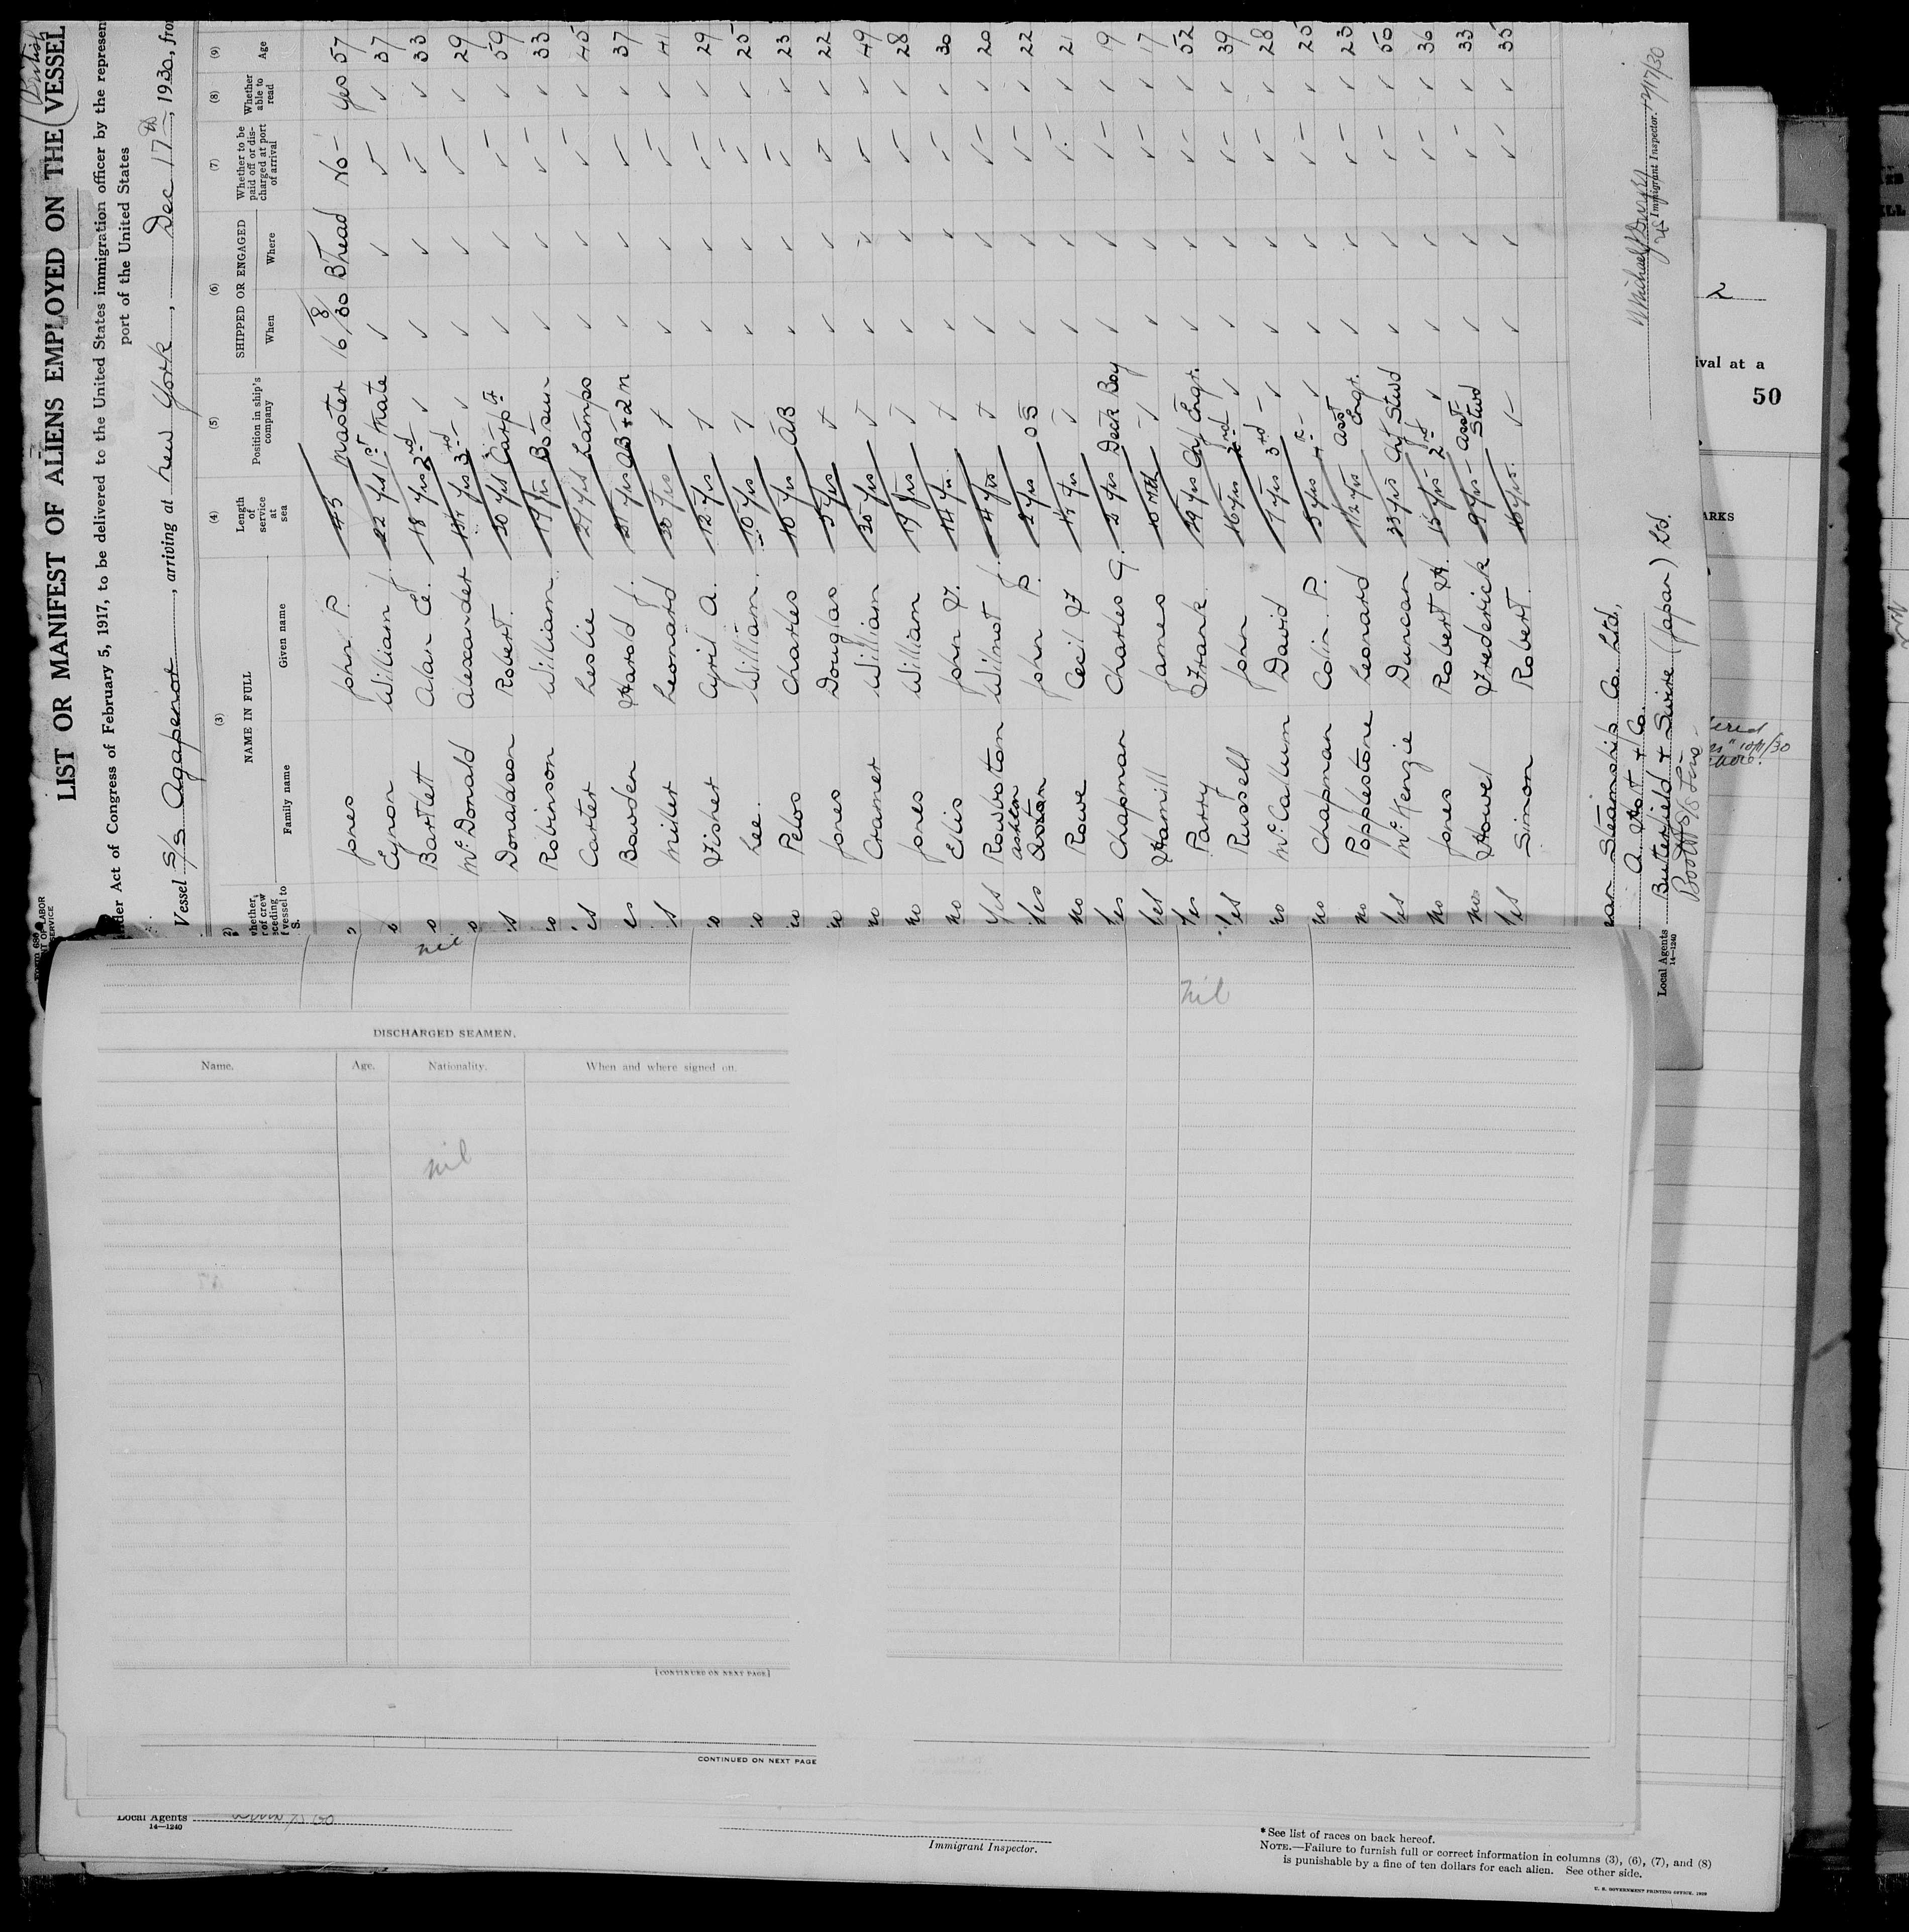 LIST OR MANIFEST OF ALIENS EMPLOYED ON THE VESSEL
(British
under Act of Congress of February 5, 1917, to be delivered to the United States immigration officer by the represen
port of the United States
Vessel S/S Agapenor, arriving at New York, Dec 17th, 1930, from
(3) (4) (5) (6) (7) (8) (9)
NAME IN FULL
Family name Given name
Length of service at sea
Position in ship's company
SHIPPED OR ENGAGED
When Where
Whether to be paid off or discharged at port of arrival
Whether able to read
Age
Jones John P. 43 Master 16/8/30 B'head No Yes 57
Eynon William J. 22 yrs 1st Mate 37
Bartlett Alan E. 18 yrs 2nd 33
McDonald Alexander yrs 3rd 29
Donaldson Robert. 30 yrs Carptr 59
Robinson William 19 yrs Bosun 33
Carter Leslie 27 yrs Lamps 45
Bowden Harold J. 21 yrs AB + 2M 37
Miller Leonard J. yrs 41
Fisher Cyril A. 12 yrs 29
Lee. William. 10 yrs 25
Pelos Charles 10 yrs AB 23
Jones Douglas 5 yrs 22
Cramer William 30 yrs 49
Jones William 19 yrs 28
no Ellis John F. 14 yrs 30
Yes Rowbotton Wilmot J. 4 yrs 20
Yes Ashton John P. 2 yrs OS 22
no Rowe Cecil F 21
Yes Chapman Charles G. 2 yrs Deck Boy 19
Yes Hamill James 10 Mth 17
Yes Parry Frank 29 yrs Chf Engr. 52
Yes Russell John 16 yrs 2nd 39
no McCallum David 7 yrs 3rd 28
no Chapman Colin P. 5 yrs 4th 25
no Popplestone Leonard 1½ yrs Asst Engr. 23
Yes McKenzie Duncan 33 yrs Chf Stwd 50
no Jones Robert H. 15 yrs 2nd 36
no Howel Frederick 9 yrs Asst Stwd 33
Yes Simon Robert. 16 yrs. 35
Steamship Co. Ltd,
A. Holt & Co.
Local Agents Butterfield & Swire (Japan) Ltd.
14—1240
Immigrant Inspector. 12/17/30
2
ival at a
50
ARKS
10/11/30
nil
nil
DISCHARGED SEAMEN.
Name. Age. Nationality. When and where signed on.
nil
[CONTINUED ON NEXT PAGE]
CONTINUED ON NEXT PAGE
Local Agents
14—1240
Immigrant Inspector.
*See list of races on back hereof.
NOTE.—Failure to furnish full or correct information in columns (3), (6), (7), and (8)
is punishable by a fine of ten dollars for each alien. See other side.
U. S. GOVERNMENT PRINTING OFFICE. 1929